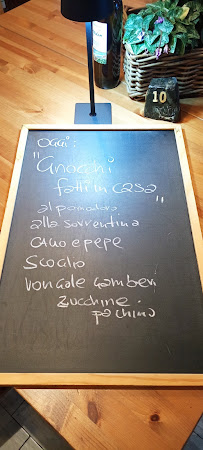 10
OGGI:
"Gnocchi
fatti in casa"
al pomodoro
alla sorrentina
CACIO e pepe
Scoglio
vongole Gamberi
zucchine.
pachino